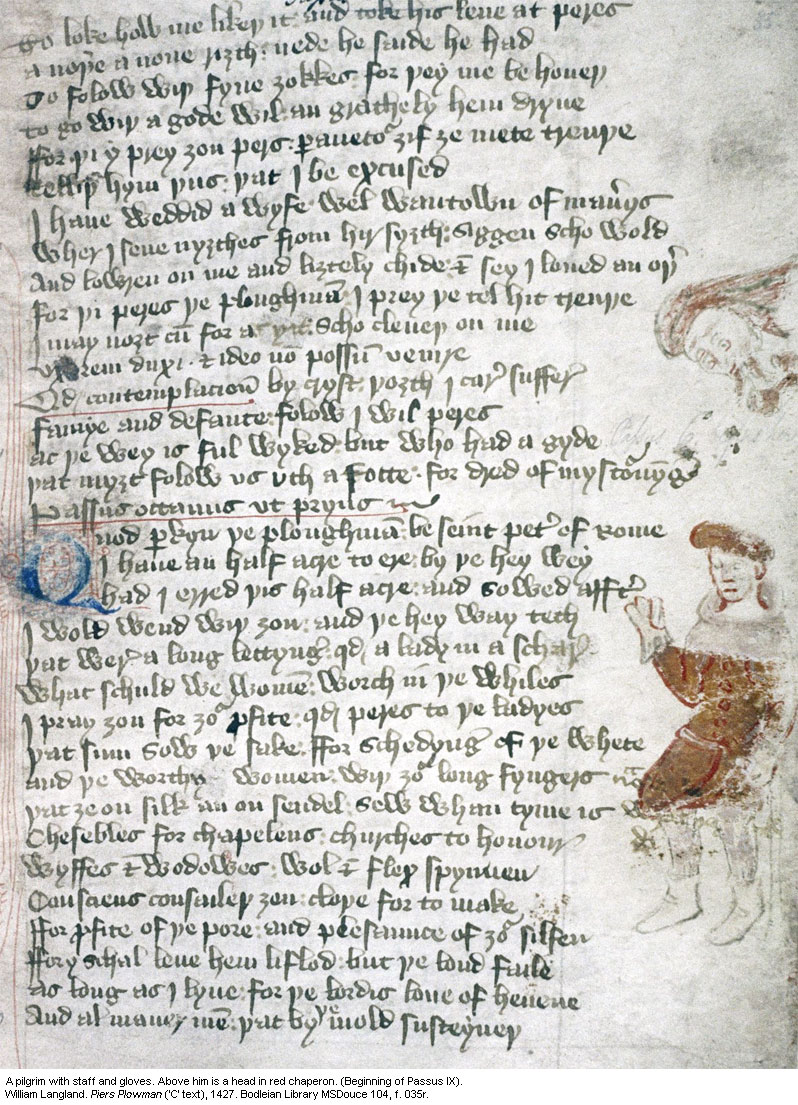 To loke how me likeþ it and toke his leue at peres
a noþe a none riȝth : nede he saide he had
To folow wiþ fyue ȝokkes for þey me be houeþ
to go wiþ a gode wil an graythely hem dryue
ffor þi y prey ȝou pers : ꝑauetoʳ ȝif ȝe mete treuþe
telliþ hym þus þat I be excused
I haue weddid a wyfe wel wantown of man̄ys
wher I seue nyȝthes from hir syȝth : siggen scho wold
And lowren on me and liȝtely chide & sey I loued an oþ̄
for þi peres þe ploughmā I prey þe tel hit treuþe
I may noȝt cū for a : scho cleueþ on me
vxorem duxi · & ideo no possū venire
Qd contemplacioū by cryst þoȝth I car̄ suffer̄
famyȝe and defaute folow I wil peres
ac þe wey is ful wyked but who had a gyde
þat myȝt folow vs vch a fotte · for dred of mystornyḡ
Passus octauus vt prius
Quod ꝑkyn þe ploughmā be seint pet̄ of Rome
I haue an half acre to ere by þe hey wey
had I erred þis half acre and sowed afft̄
I wold wend wiþ ȝou and þe hey way tech
þat wer̄ a long lettynḡ qd a lady in a schar̄
what schuld we womē worch in þe whiles
I pray ȝou for ȝoʳ pfite qd peres to þe ladyes
þat sum sow þe sake ffor schedynḡ of þe whete
and ȝe worthy women wiþ ȝoʳ long fyngers
þat ȝe on silk an on sendel sew whan tyme is
Chesebles for chapelens churches to honour
wyffes & wodowes wol & flex spynneþ
Consciens consaileþ ȝou cloþe for to make
ffor ꝓfite of þe pore and plesaunce of ȝoʳ silfen
ffor y schal leue hem liflod but þe lond faile
as long as I lyue for þe lordis loue of heuene
And al maner̄ mē þat by mold susteyneþ
A pilgrim with staff and gloves. Above him is a head in red chaperon. (Beginning of Passus IX).
William Langland. Piers Plowman ('C' text), 1427. Bodleian Library MSDouce 104, f. 035r.